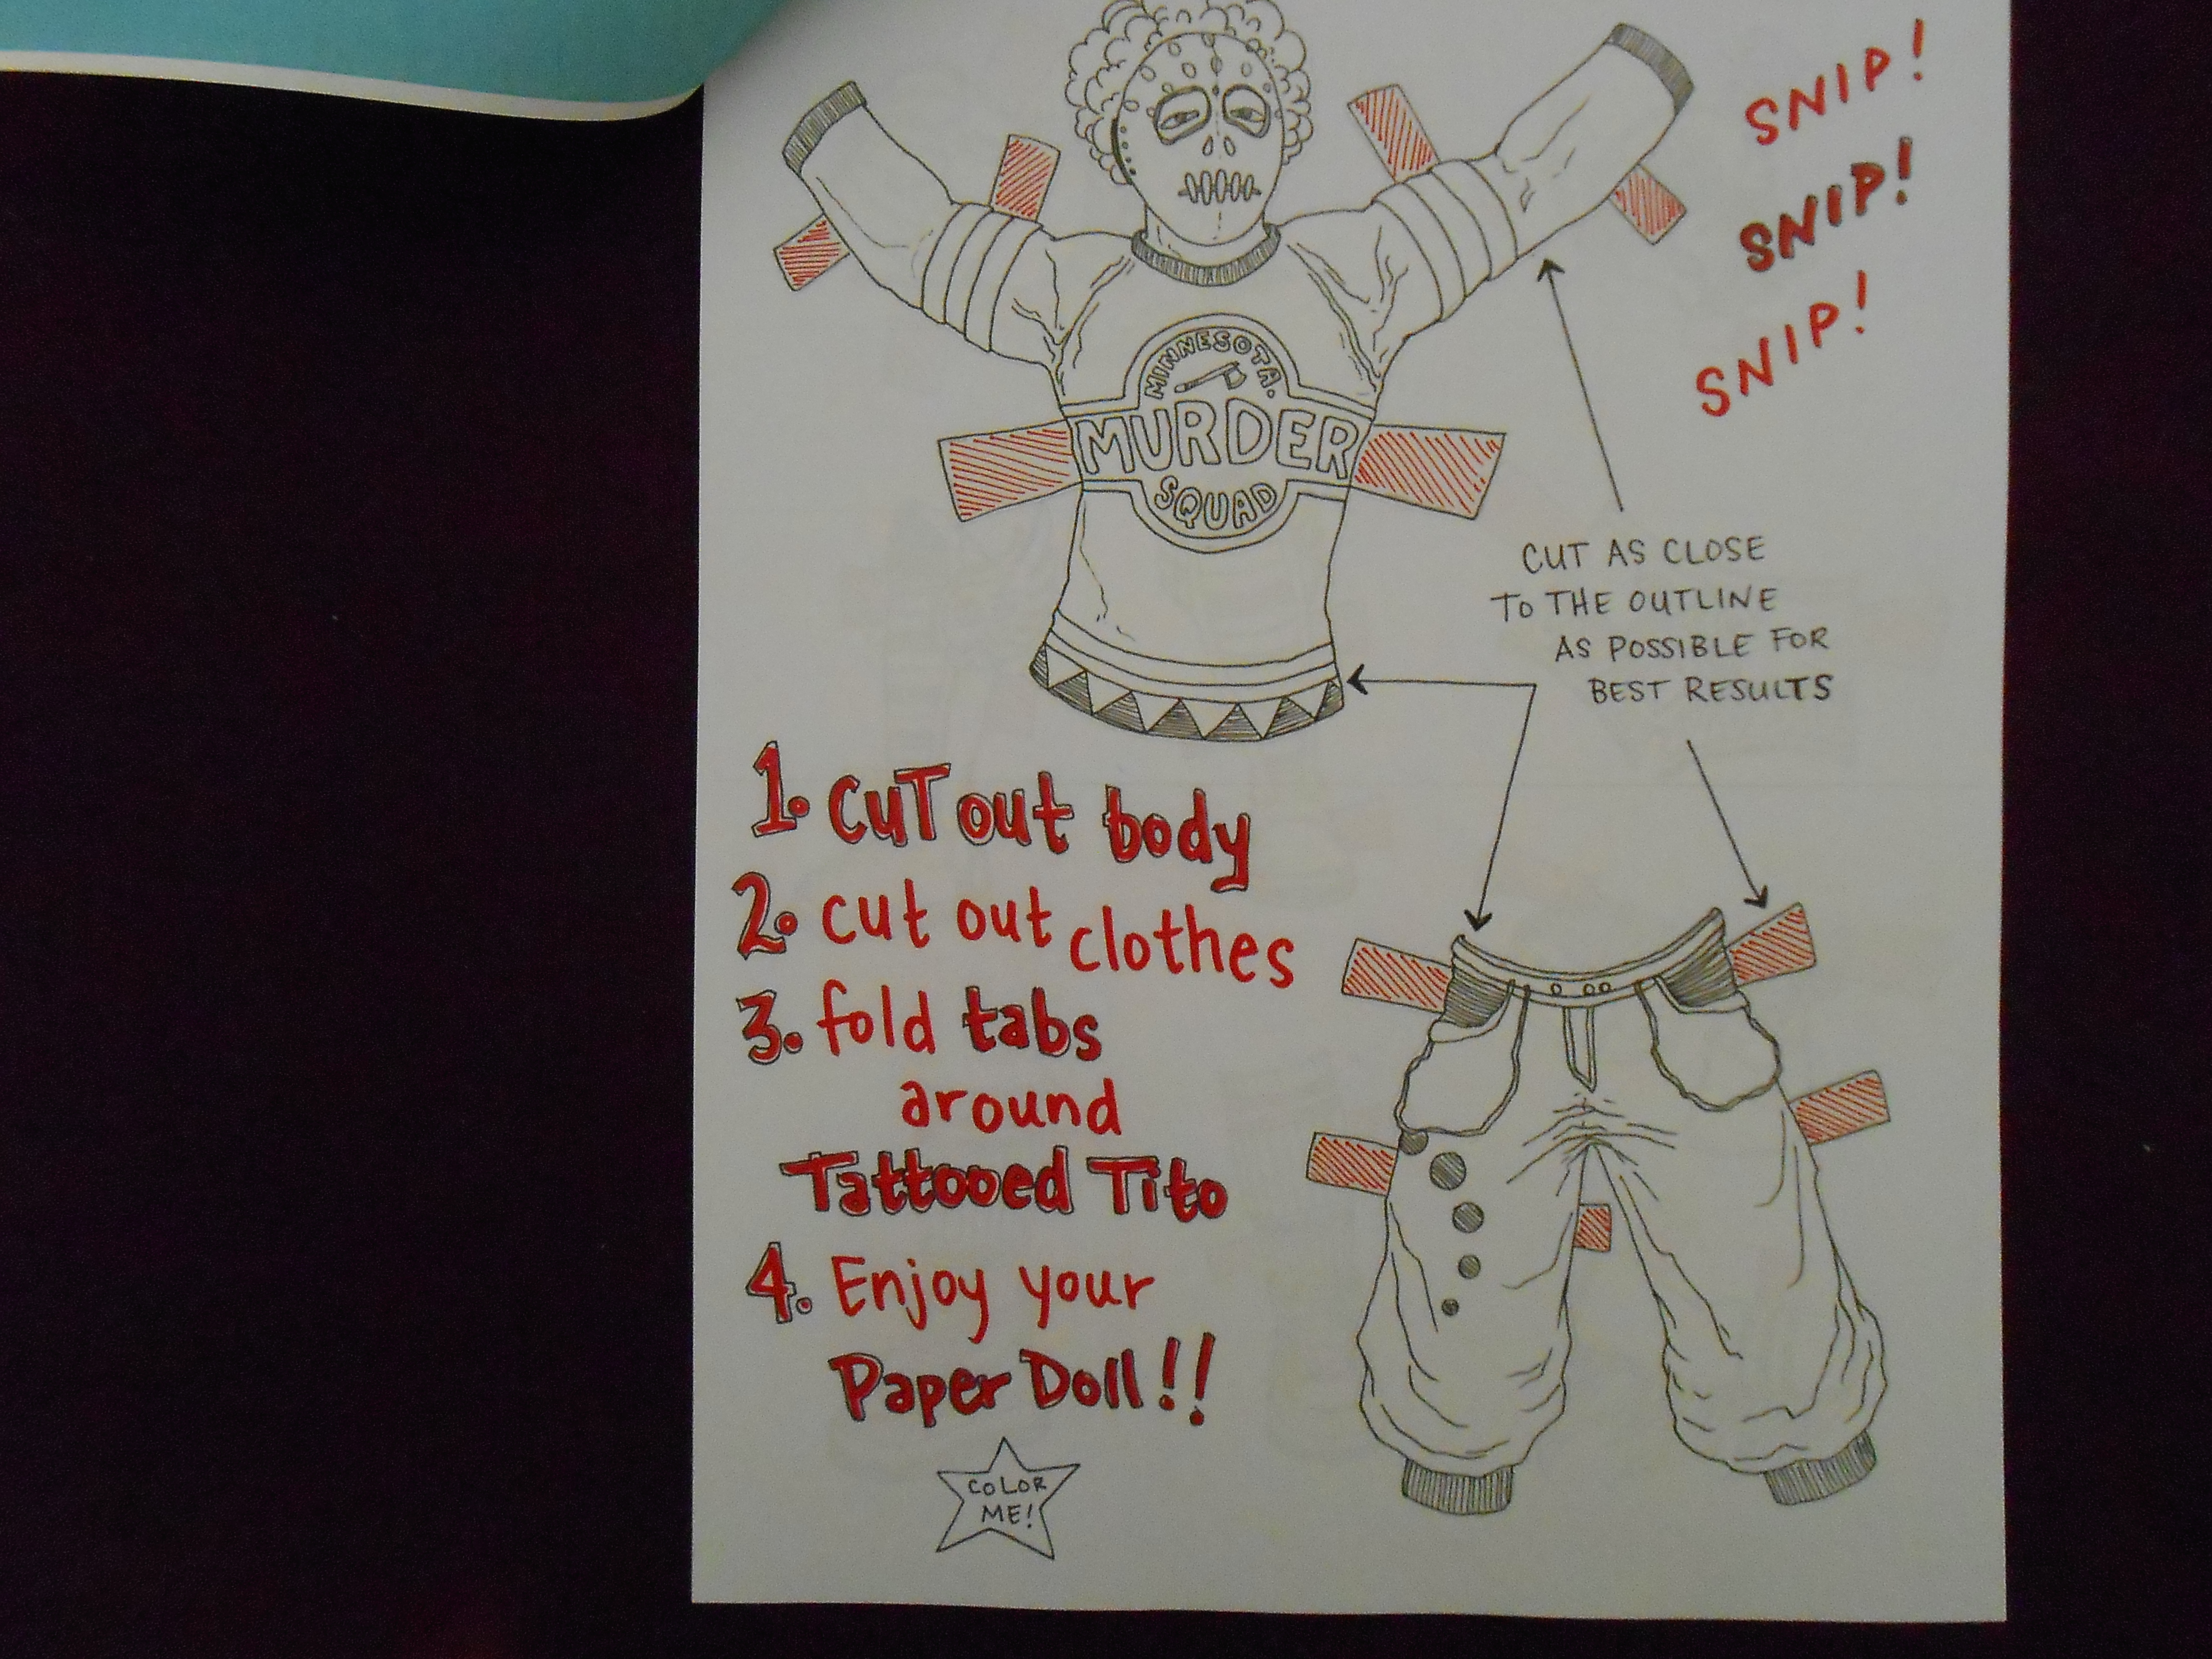 SNIP!
SNIP!
SNIP!
MINNESOTA.
MURDER
SQUAD
CUT AS CLOSE
TO THE OUTLINE
AS POSSIBLE FOR
BEST RESULTS
1. cuT out body
2. cut out clothes
3. fold tabs
around
Tattooed Tito
4. Enjoy your
Paper Doll!!
COLOR
ME!